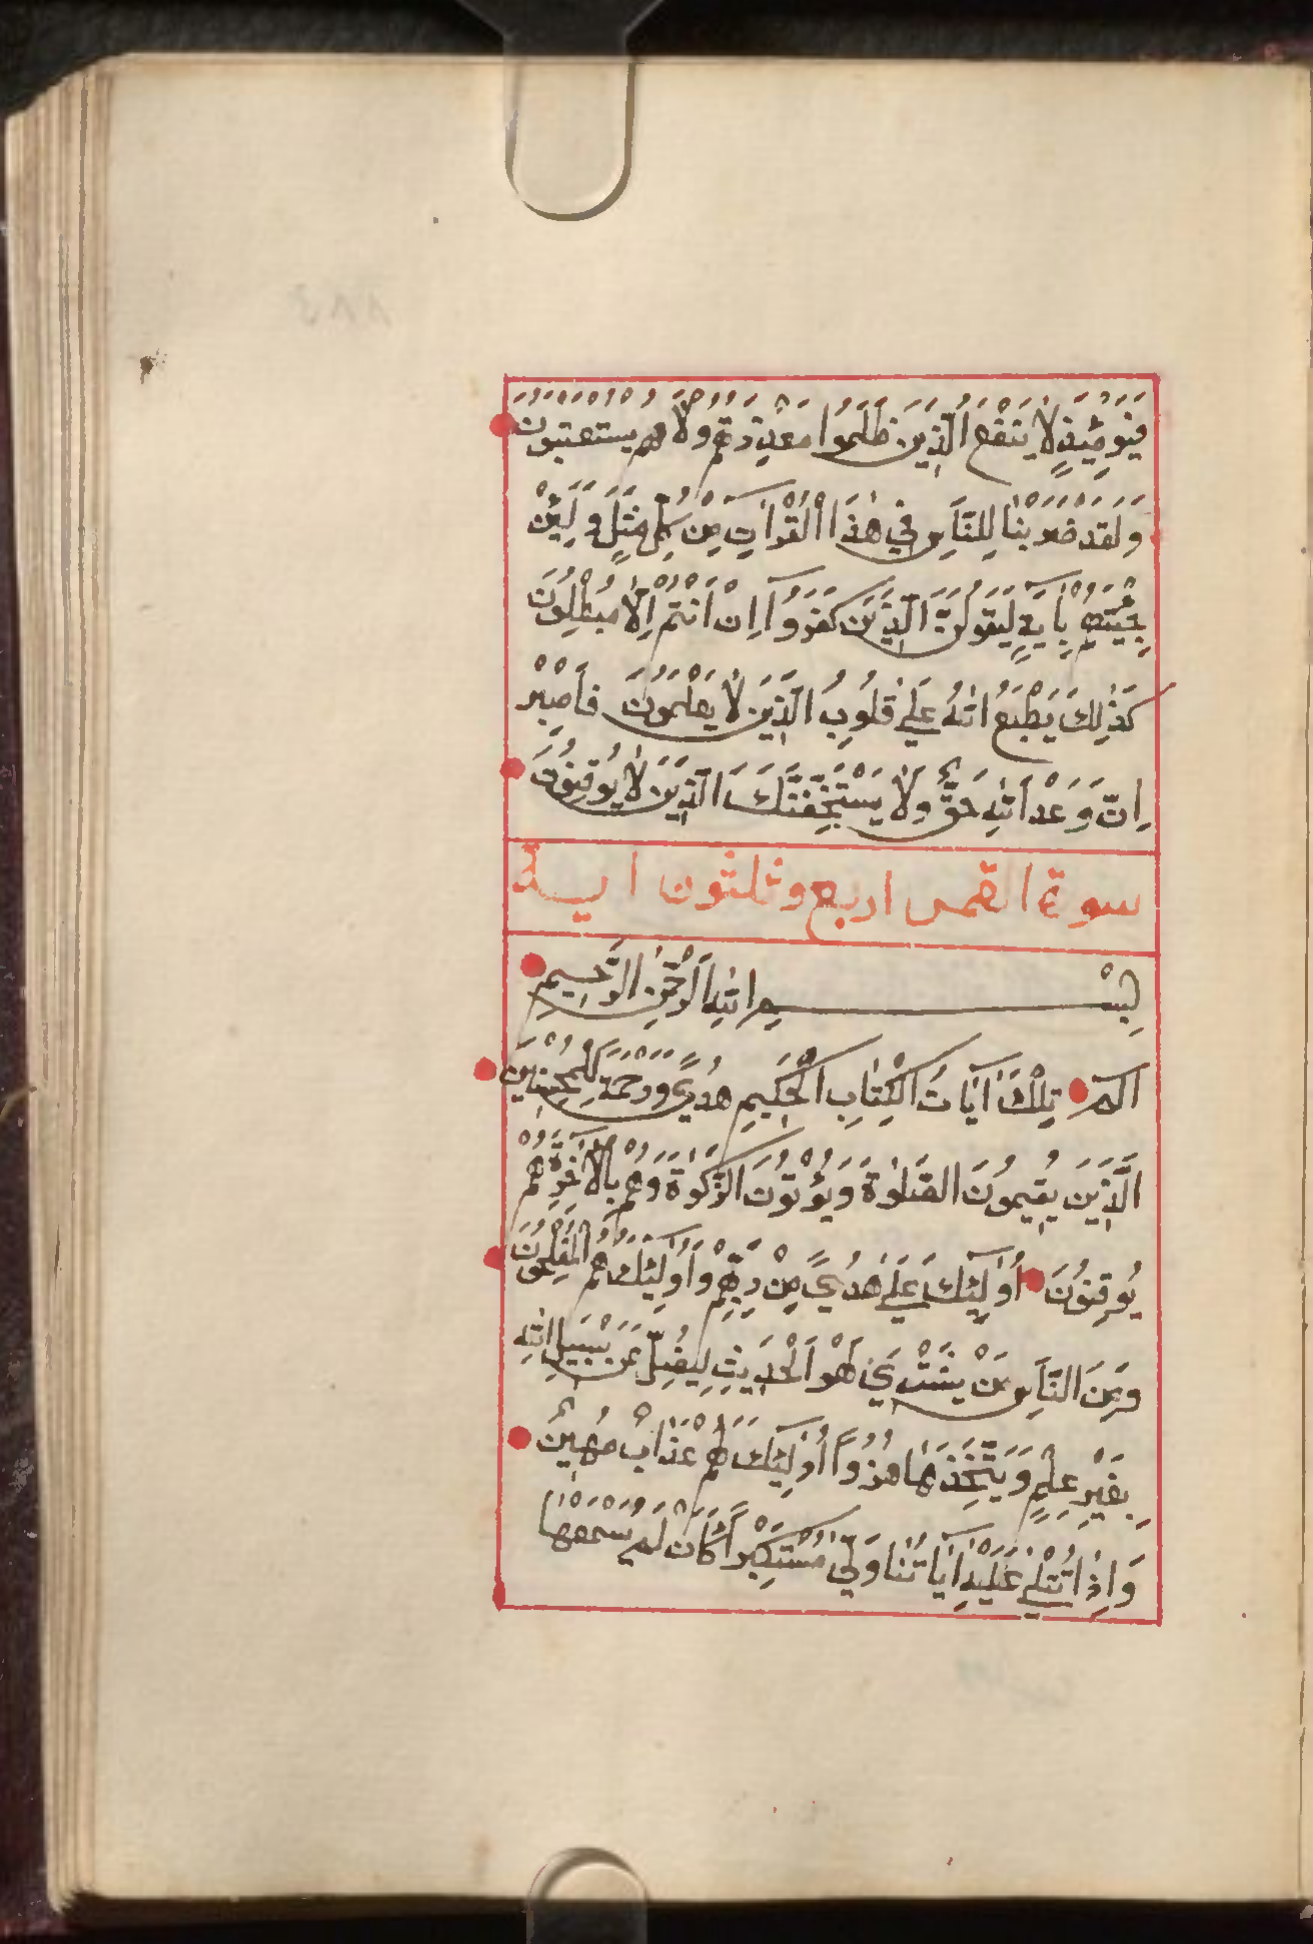 فَيَوْمَئِذٍ لَا يَنْفَعُ الَّذِينَ ظَلَمُوا مَعْذِرَتُهُمْ وَلَا هُمْ يُسْتَعْتَبُونَ
وَلَقَدْ ضَرَبْنَا لِلنَّاسِ فِي هٰذَا الْقُرْآنِ مِنْ كُلِّ مَثَلٍ وَلَئِنْ
جِئْتَهُمْ بِآيَةٍ لَيَقُولَنَّ الَّذِينَ كَفَرُوا إِنْ أَنْتُمْ إِلَّا مُبْطِلُونَ
كَذٰلِكَ يَطْبَعُ اللهُ عَلَى قُلُوبِ الَّذِينَ لَا يَعْلَمُونَ فَاصْبِرْ
اِنَّ وَعْدَ اللهِ حَقٌّ وَلَا يَسْتَخِفَّنَّكَ الَّذِينَ لَا يُوقِنُونَ
سورة القمن اربع وثلثون اية
بِسْمِ اللهِ الرَّحْمٰنِ الرَّحِيمِ
الم تِلْكَ اٰيَاتُ الْكِتَابِ الْحَكِيمِ هُدًى وَرَحْمَةً لِلْمُحْسِنِينَ
الَّذِينَ يُقِيمُونَ الصَّلٰوةَ وَيُؤْتُونَ الزَّكٰوةَ وَهُمْ بِالْاٰخِرَةِ هُمْ
يُوقِنُونَ اُولٰئِكَ عَلَى هُدًى مِنْ رَبِّهِمْ وَاُولٰئِكَ هُمُ الْمُفْلِحُونَ
وَمِنَ النَّاسِ مَنْ يَشْتَرِي لَهْوَ الْحَدِيثِ لِيُضِلَّ عَنْ سَبِيلِ اللهِ
بِغَيْرِ عِلْمٍ وَيَتَّخِذَهَا هُزُوًا اُولٰئِكَ لَهُمْ عَذَابٌ مُهِينٌ
وَاِذَا تُتْلٰى عَلَيْهِ اٰيَاتُنَا وَلّٰى مُسْتَكْبِرًا كَاَنْ لَمْ يَسْمَعْهَا